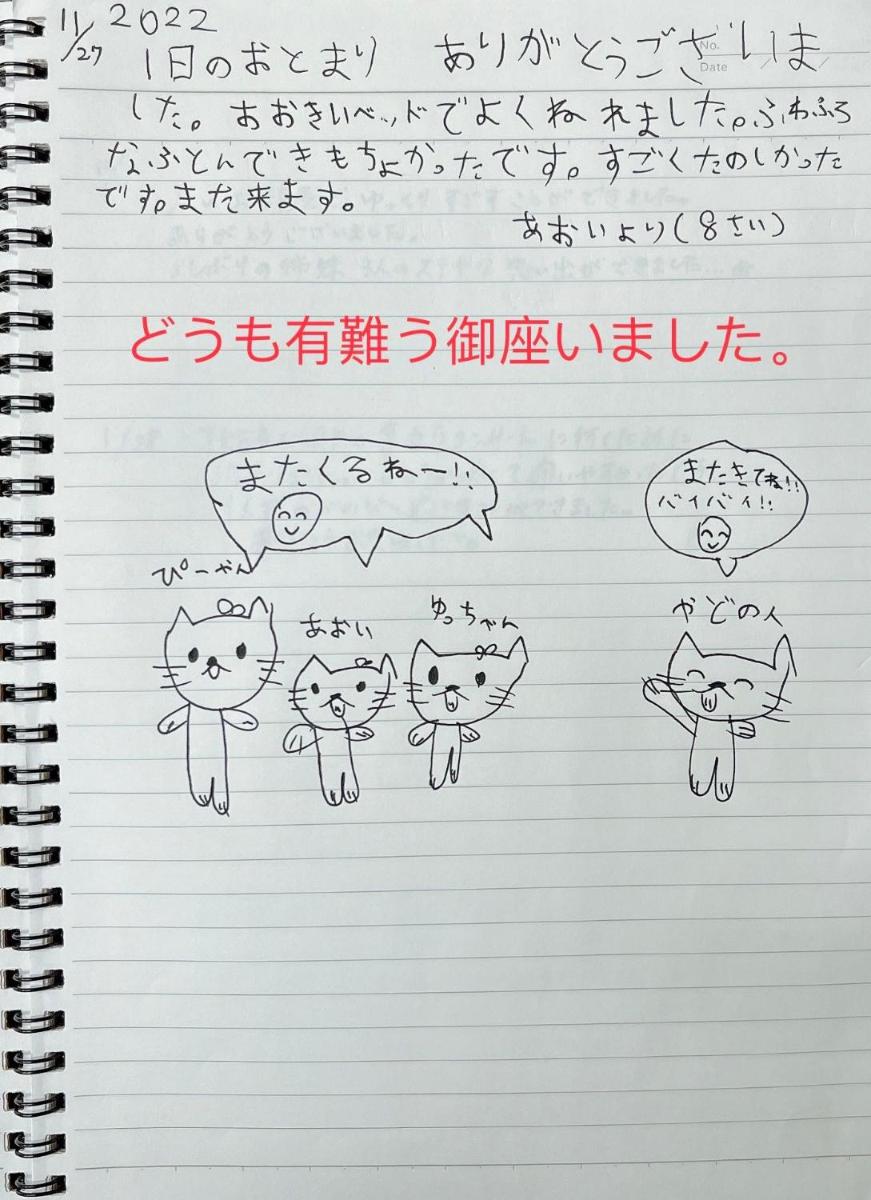 11/27 2022
1日のおとまり ありがとうございま
No.
Date
した。おおきいベッドでよくねれました。ふわふろ
なふとんできもちよかったです。すごくたのしかった
です。また来ます。
あおいより(8さい)
どうも有難う御座いました。
またくるねー!!
またきてね!!
バイバイ!!
ぴーやん
あおい
ゆっちゃん
やどの人